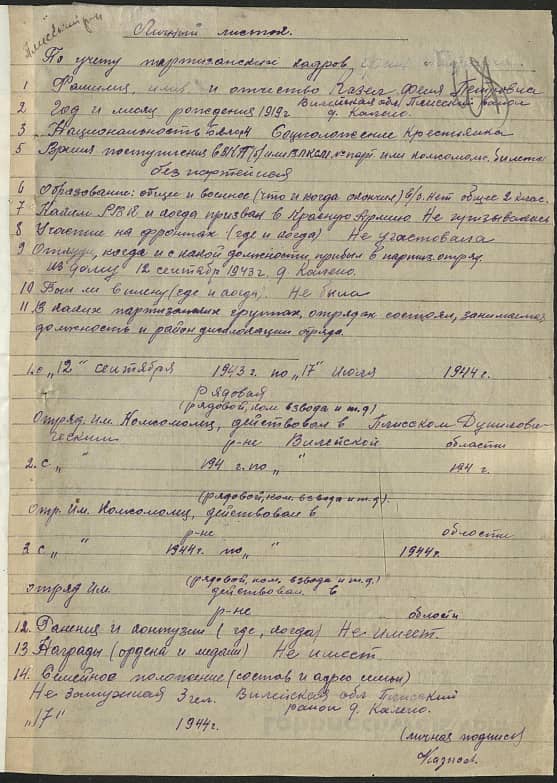 Плисский р-н
Личный листок
По учету партизанских кадров
1 Фамилия, имя и отчество Казел Фения Петровна
2 Год и месяц рождения 1919 г Вилейская обл Плисский район
д. Калено.
3 Национальность белор Соцположение Крестьянка
5 Время поступления в ВКП(б) или ВЛКСМ № парт или комсомол. билета
без партейная
6 Образование: общее и военное (что и когда окончил) в/о. нет общее 2 клас.
7 Каким РВК и когда призван в Красную Армию Не призывалась
8 Участие на фронтах (где и когда) Не участвовала
9 Откуда, когда и с какой должности прибыл в партиз. отряд.
из дому 12 сентября 1943 г. д Калено.
10 Был ли в плену (где и когда). Не была
11. В каких партизанских группах, отрядах состоял, занимаемая
должность и район дислокации отряда.
1. с „12" сентября 1943 г. по „17" Июля 1944 г.
Рядовая
(рядовой, ком взвода и т.д)
Отряд им. Комсомолец, действовал в Плисском Дунилови-
ческим р-не Вилейской области
2. с „ " 194 г. по „ " 194 г.
(рядовой, ком. взвода и т.д).
Отр. Им. Комсомолец, действовал в
р-не области
3. с „ " 1944 г. по „ " 1944 г.
(рядовой, ком. взвода и т.д.)
отряд Им. действовал в
р-не области
12. Ранения и контузии (где, когда) Не имеет.
13 Награды (ордена и медали) Не имеет
14. Семейное положение (состав и адрес семьи)
Не замужная 3 чел. Вилейская обл Плисский
район д. Калено.
„17" 1944 г.
(личная подпись)